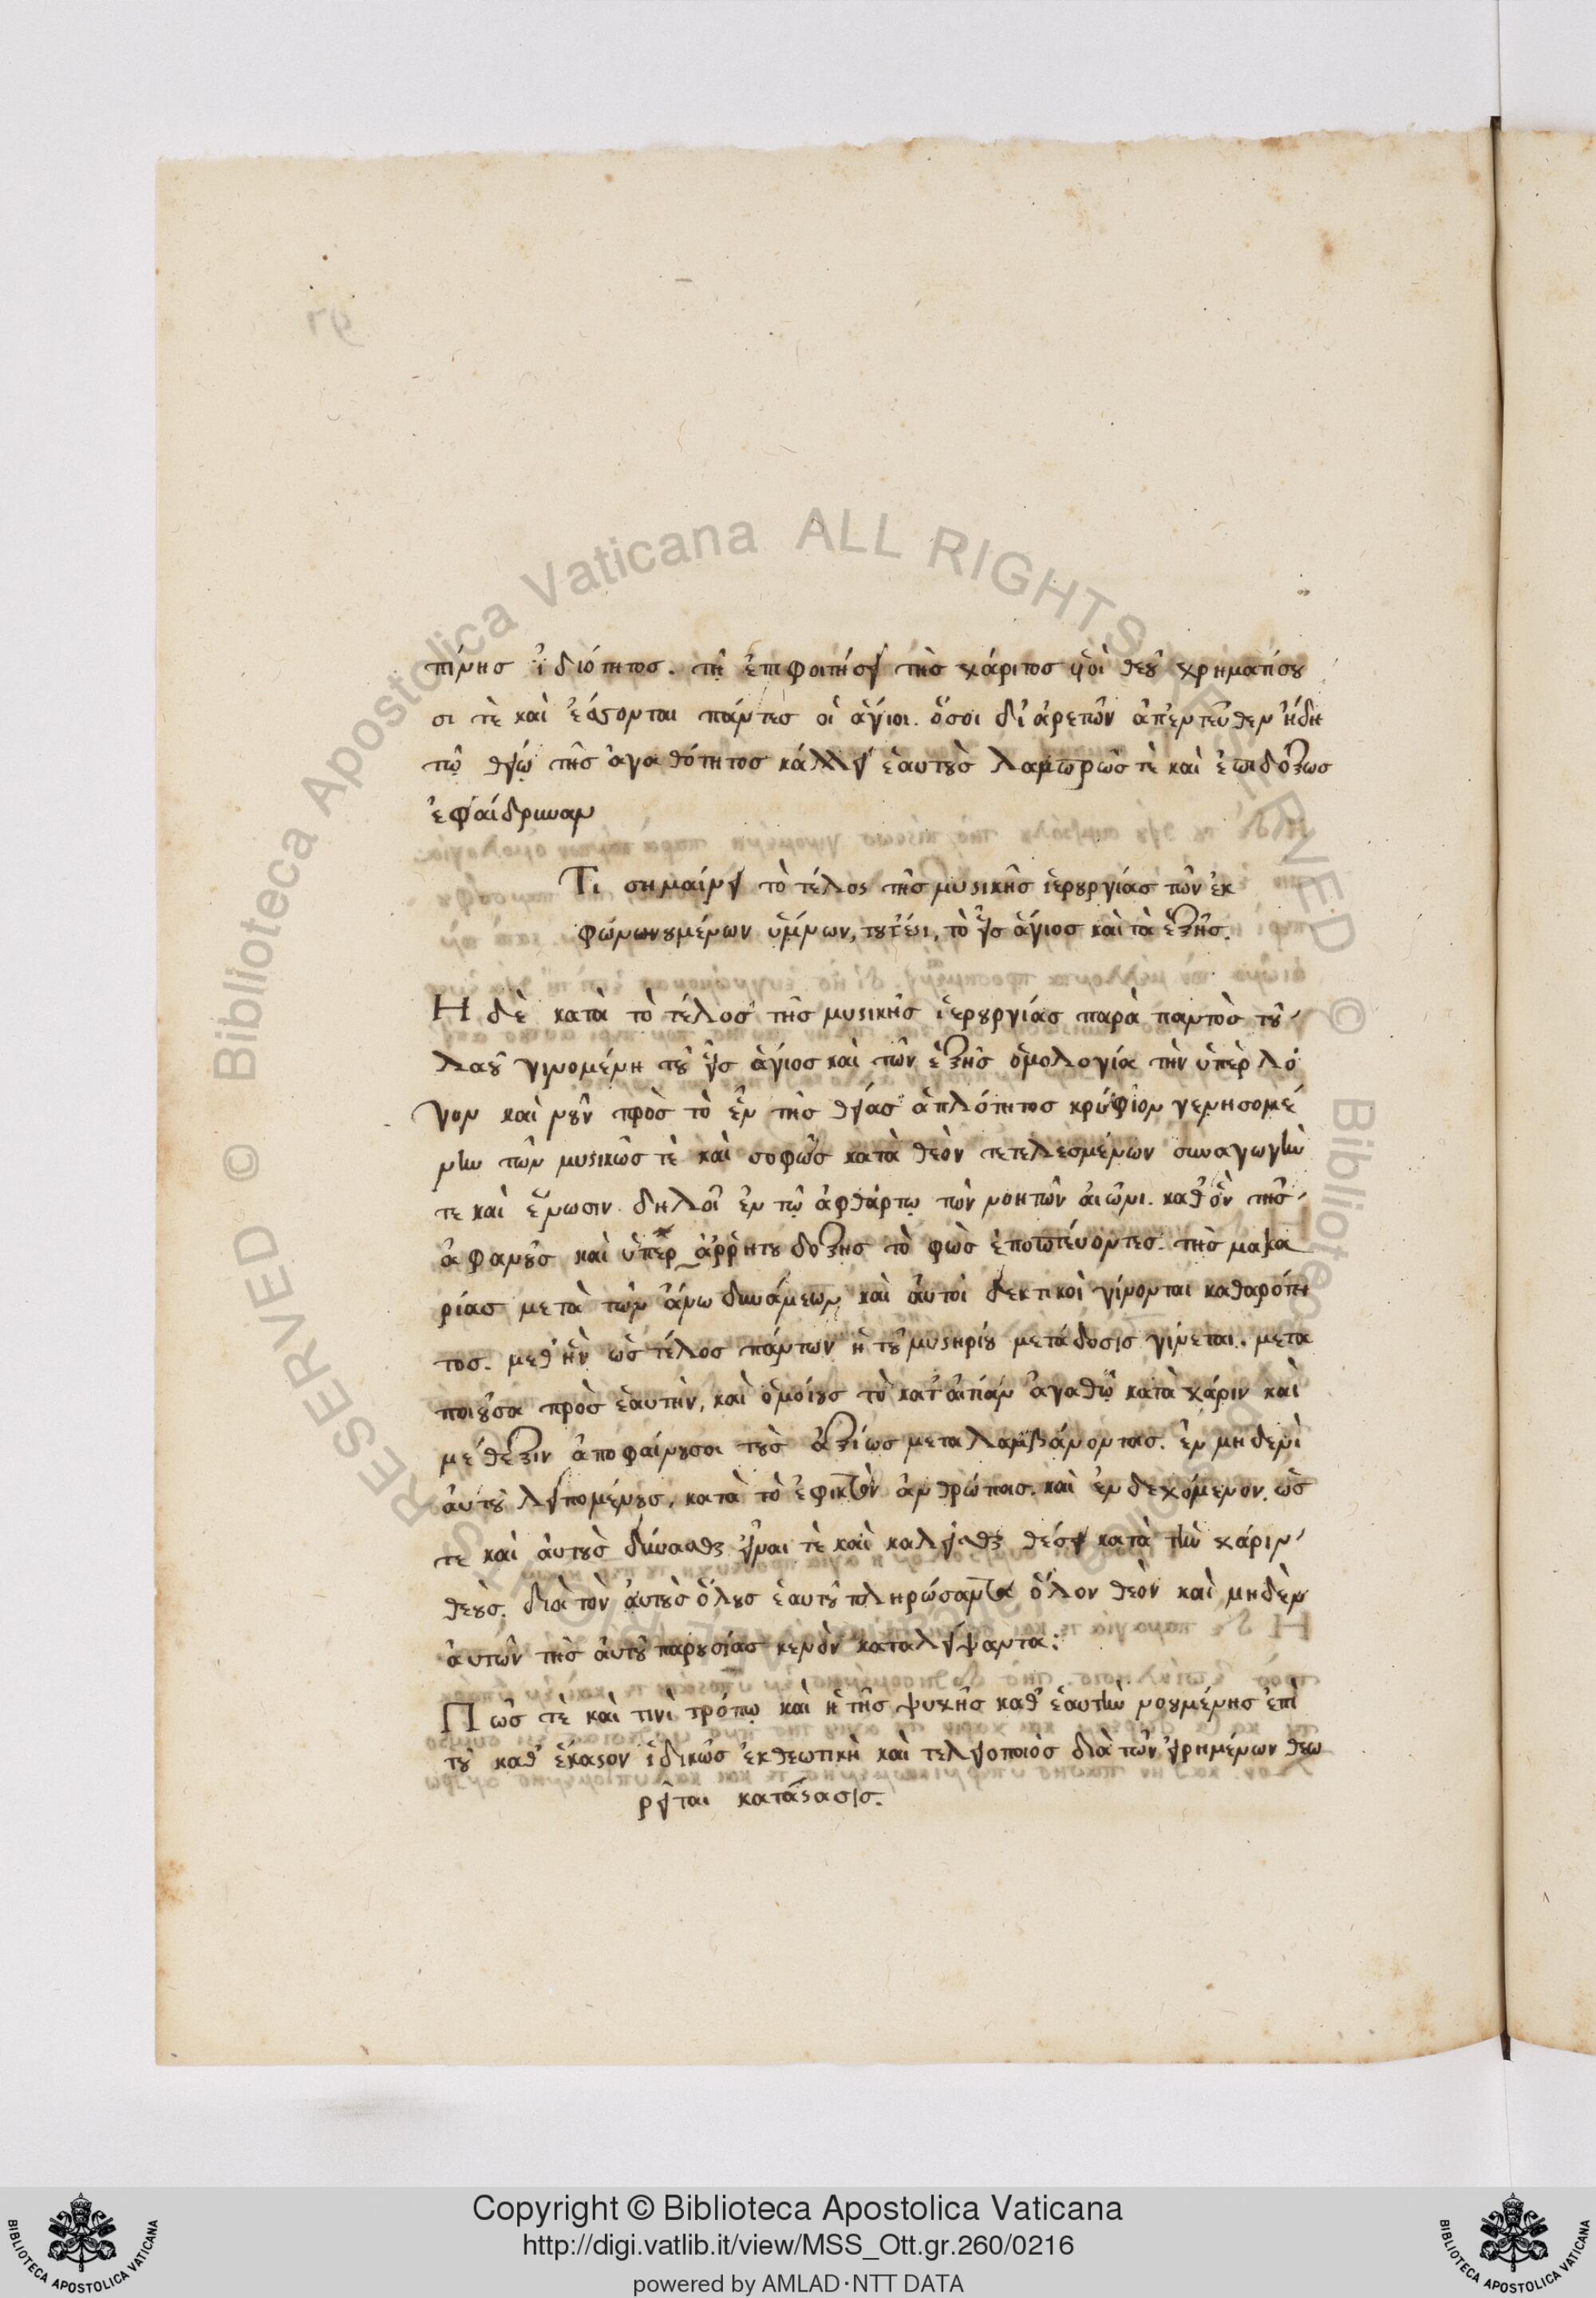 τίνης ἰδιότητος. τῇ ἐπιφοιτήσει τῆς χάριτος υἱοὶ θεοῦ χρηματίσου
σι τὲ καὶ ἔσονται πάντες οἱ ἅγιοι. ὅσοι δι' ἀρετῶν ἀπεντεῦθεν ἤδη
τῷ θείῳ τῆς ἀγαθότητος κάλλει ἑαυτοὺς λαμπρῶς τὲ καὶ ἐπιδόξως
ἐφαίδρυναν
Τι σημαίνει τὸ τέλος τῆς μυστικῆς ἱερουργίας τῶν ἐκ
φώνωνουμένων ὕμνων, τουτέστι, τὸ εἷς ἅγιος καὶ τὰ ἑξῆς.
Η δὲ κατὰ τὸ τέλος τῆς μυστικῆς ἱερουργίας παρὰ παντὸς τοῦ
λαοῦ γινομένη τοῦ εἷς ἅγιος καὶ τῶν ἑξῆς ὁμολογία τὴν ὑπὲρ λό
γον καὶ νοῦν πρὸς τὸ ἓν τῆς θείας ἁπλότητος κρύφιον γενησομέ
νην τῶν μυστικῶς τὲ καὶ σοφῶς κατὰ θεὸν τετελεσμένων συναγωγὴν
τε καὶ ἕνωσιν δηλοῖ ἐν τῷ ἀφθάρτῳ τῶν νοητῶν αἰῶνι. καθ' ὃν τῆς
ἀφανοῦς καὶ ὑπὲρ ἀρρήτου δόξης τὸ φῶς ἐποπτεύοντες. τῆς μακα
ρίας μετὰ τῶν ἄνω δυνάμεων καὶ αὐτοὶ δεκτικοὶ γίνονται καθαρότη
τος. μεθ' ἣν ὡς τέλος πάντων ἡ τοῦ μυστηρίου μετάδοσις γίνεται. μετα
ποιοῦσα πρὸς ἑαυτὴν, καὶ ὁμοίους τὸ κατ' αἰτίαν ἀγαθῷ κατὰ χάριν καὶ
μέθεξιν ἀποφαίνουσα τοὺς ἀξίως μεταλαμβάνοντας. ἐν μηδενὶ
αὐτοῦ λειπομένους, κατὰ τὸ ἐφικτὸν ἀνθρώποις. καὶ ἐνδεχόμενον. ὥς
τε καὶ αὐτοὺς δύνασθαι εἶναι τὲ καὶ καλεῖσθαι θέσει κατὰ τὴν χάριν
θεούς. διὰ τὸν αὐτοὺς ὅλους ἑαυτοῦ πληρώσαντα ὅλον θεὸν καὶ μηδὲν
αὐτῶν τῆς αὐτοῦ παρουσίας κενὸν καταλείψαντα:
Πῶς τὲ καὶ τινὶ τρόπῳ καὶ ἡ τῆς ψυχῆς καθ' ἑαυτὴν νοουμένης ἐπὶ
τοῦ καθ' ἕκαστον ἰδικῶς ἐκθεωτικὴ καὶ τελειοποιὸς διὰ τῶν εἰρημένων θεω
ρεῖται κατάστασις.
Copyright © Biblioteca Apostolica Vaticana
http://digi.vatlib.it/view/MSS_Ott.gr.260/0216
powered by AMLAD·NTT DATA